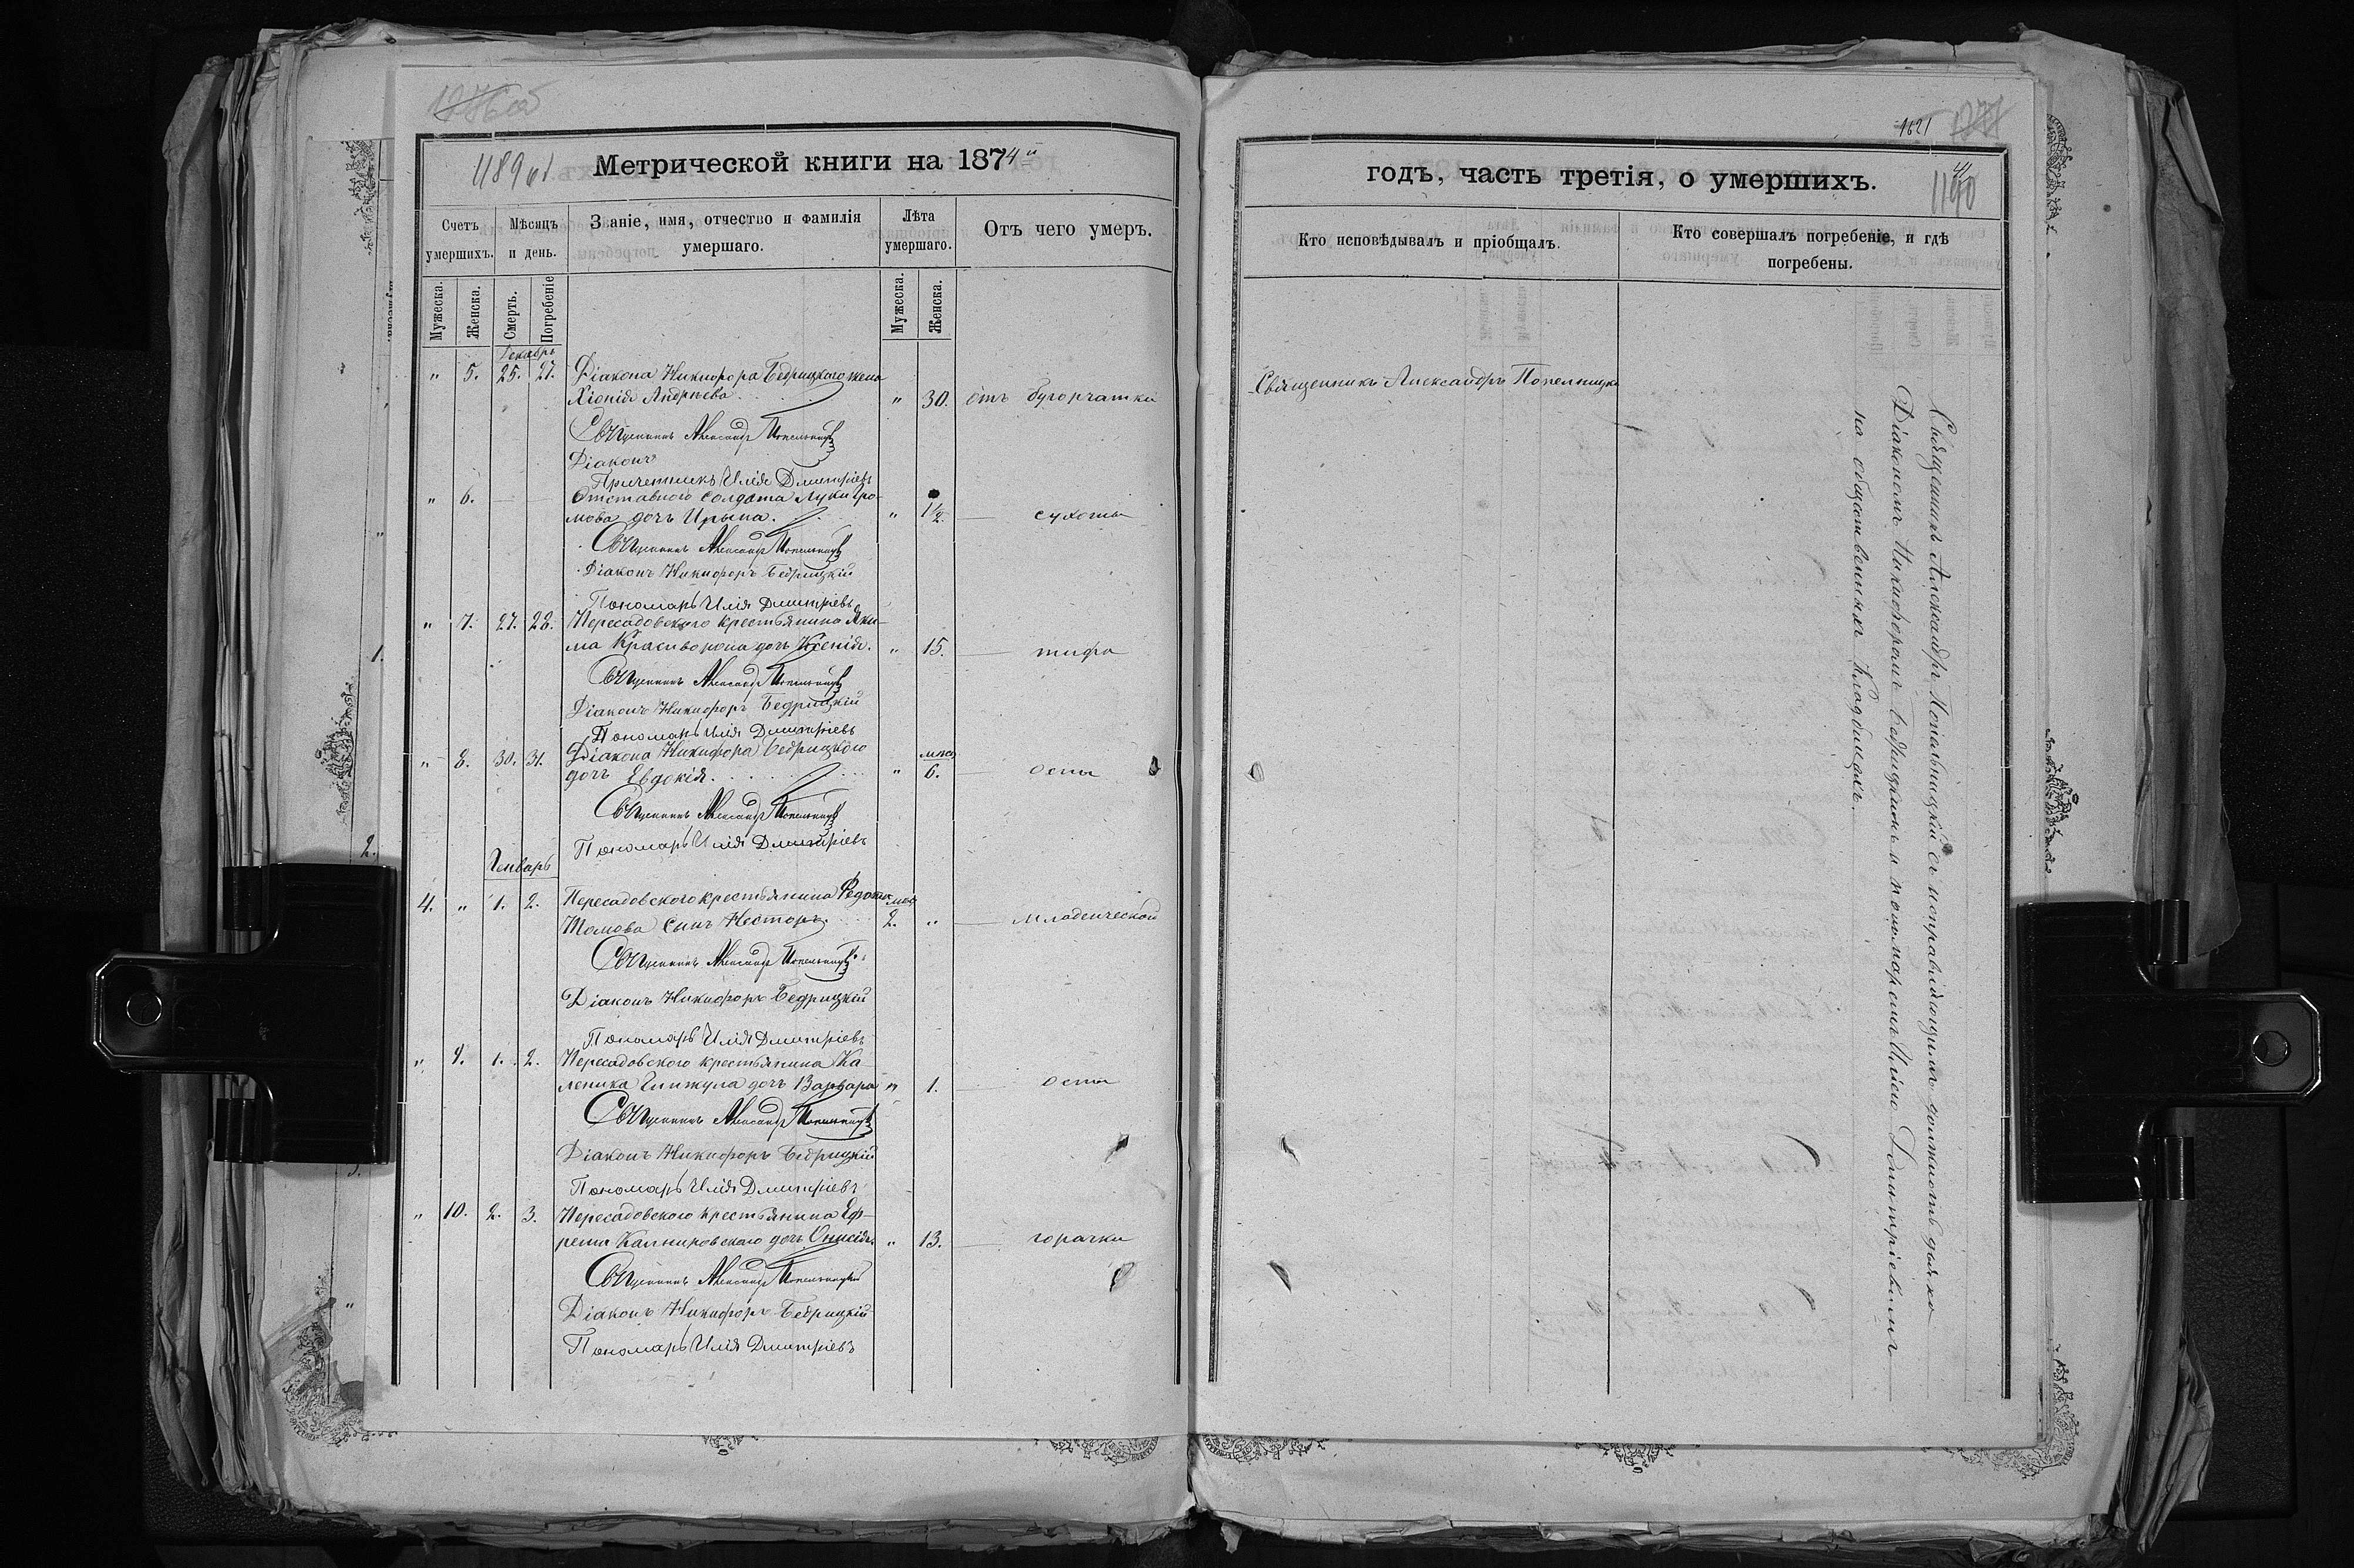 1189 об
Метрической книги на 1874й
Счетъ умершихъ.
Мѣсяцъ и день.
Званіе, имя, отчество и фамилія умершаго.
Лѣта умершаго.
Отъ чего умеръ.
Мужеска.
Женска.
Смерть.
Погребеніе
Мужеска.
Женска.
Декабрь
" 5. 25. 27. Діакона Никифора Бедрицкого жена
Хіонія Андрѣева. " 30. отъ бугорчатки
Священникъ Александръ Попельницкій
Діаконъ
Причетникъ Илія Дмитріевъ
" 6. — — Отставного солдата Луки Гро-
мова дочь Ирына. " 1½. — сухоты
Священникъ Александръ Попельницкій
Діаконъ Никифоръ Бедрицкій
Пономарь Илія Дмитріевъ
" 7. 27. 28. Пересадовского крестьянина Яки-
ма Красиворона дочь Ксенія. " 15. — тифа
Священникъ Александръ Попельницкій
Діаконъ Никифоръ Бедрицкій
Пономарь Илія Дмитріевъ
" 8. 30. 31. Діакона Никифора Бедрицкого
мѣс.
дочь Евдокія. " 6. — оспы
Священникъ Александръ Попельницкій
Пономарь Илія Дмитріевъ
Генварь
4. " 1. 2. Пересадовского крестьянина Федота мѣс
Томова сынъ Несторъ. 2. " — младенческой
Священникъ Александръ Попельницкій
Діаконъ Никифоръ Бедрицкій
Пономарь Илія Дмитріевъ
" 9. 1. 2. Пересадовского крестьянина Ка-
леника дочь Варвара " 1. — оспы
Священникъ Александръ Попельницкій
Діаконъ Никифоръ Бедрицкій
Пономарь Илія Дмитріевъ
" 10. 2. 3. Пересадовского крестьянина Еф-
рема дочь Онисія. " 13. — горячки
Священникъ Александръ Попельницкій
Діаконъ Никифоръ Бедрицкій
Пономарь Илія Дмитріевъ
1621
годъ, часть третія, о умершихъ.
1190
Кто исповѣдывалъ и пріобщалъ.
Кто совершалъ погребеніе, и гдѣ погребены.
Священникъ Александръ Попельницкі
Священникъ Александръ Попельницкій съ исправляющимъ должность дьяка
Діакономъ Никифоромъ Бедрицкимъ и пономаремъ Иліею Димитріевымъ
на общественномъ кладбищѣ.